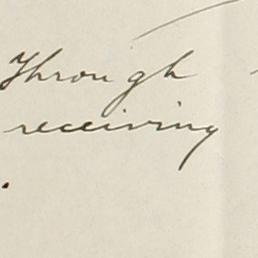 Through
receiving